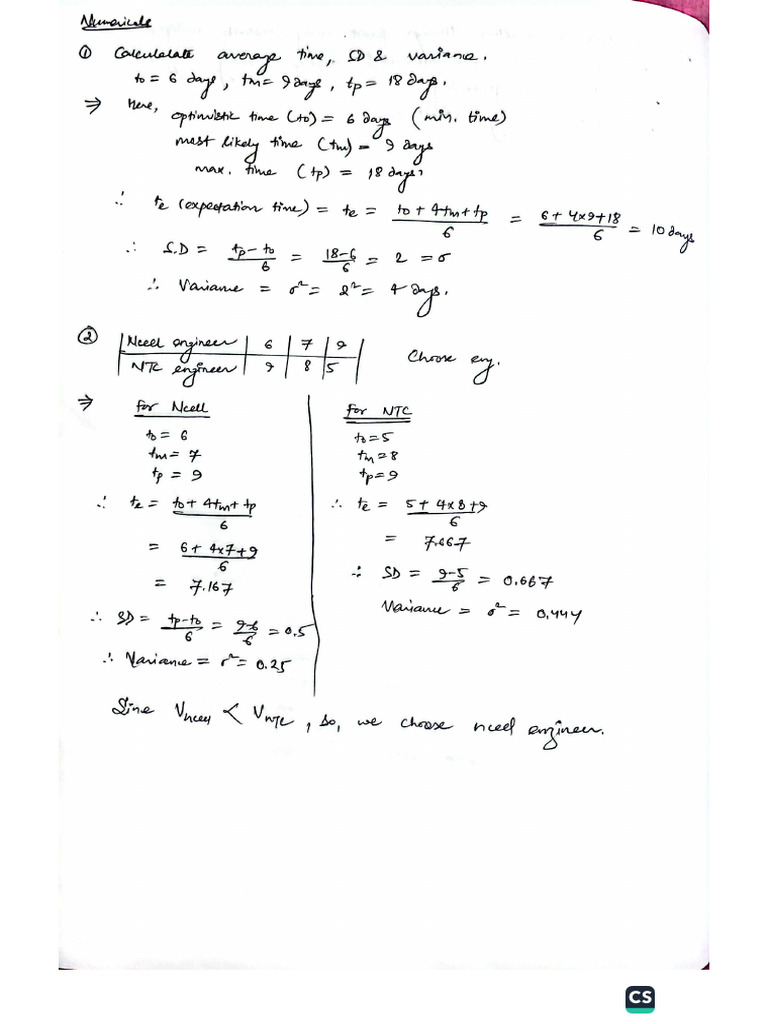 Numericals
① Calculelate average time, SD & variance.
to = 6 days, tm = 9 days, tp = 18 days.
⇒ Here,
optimistic time (to) = 6 days (min. time)
most likely time (tm) = 9 days
max. time (tp) = 18 days.
∴ te (expectation time) = te = to + 4tm + tp / 6 = 6 + 4×9 + 18 / 6 = 10 days
∴ S.D = tp - to / 6 = 18 - 6 / 6 = 2 = σ
∴ Variame = σ² = 2² = 4 days.
② | Ncell engineer | 6 | 7 | 9 |
| NTC engineer | 9 | 8 | 5 | Choose eng.
⇒ For Ncell
to = 6
tm = 7
tp = 9
∴ te = to + 4tm + tp / 6
= 6 + 4×7 + 9 / 6
= 7.167
∴ SD = tp - to / 6 = 9-6 / 6 = 0.5
∴ Variame = σ² = 0.25
For NTC
to = 5
tm = 8
tp = 9
∴ te = 5 + 4×8 + 9 / 6
= 7.667
∴ SD = 9-5 / 6 = 0.667
Variame = σ² = 0.444
Sine Vncell < VNTC, so, we choose ncell engineer.
CS